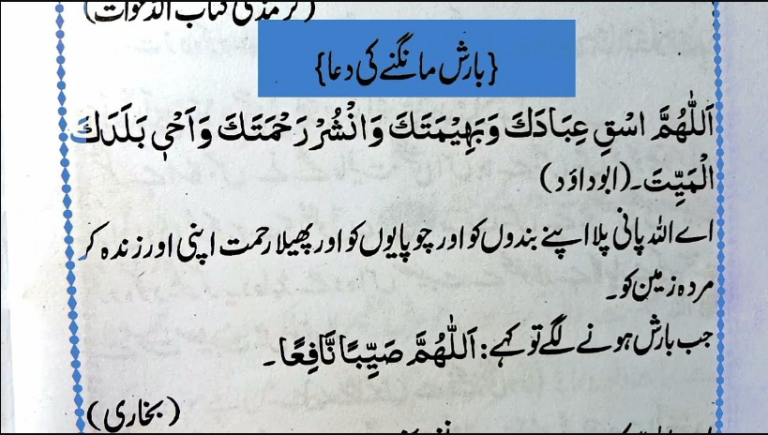 (ترمذی کتاب الدعوات)
{بارش مانگنے کی دعا}
اَللّٰهُمَّ اسْقِ عِبَادَكَ وَبَهِيْمَتَكَ وَانْشُرْ رَحْمَتَكَ وَاَحْیِ بَلَدَكَ
الْمَيِّتَ۔ (ابوداؤد)
اے اللہ پانی پلا اپنے بندوں کو اور چوپایوں کو اور پھیلا رحمت اپنی اور زندہ کر
مردہ زمین کو۔
جب بارش ہونے لگے تو کہے: اَللّٰهُمَّ صَيِّبًا نَّافِعًا۔
(بخاری)